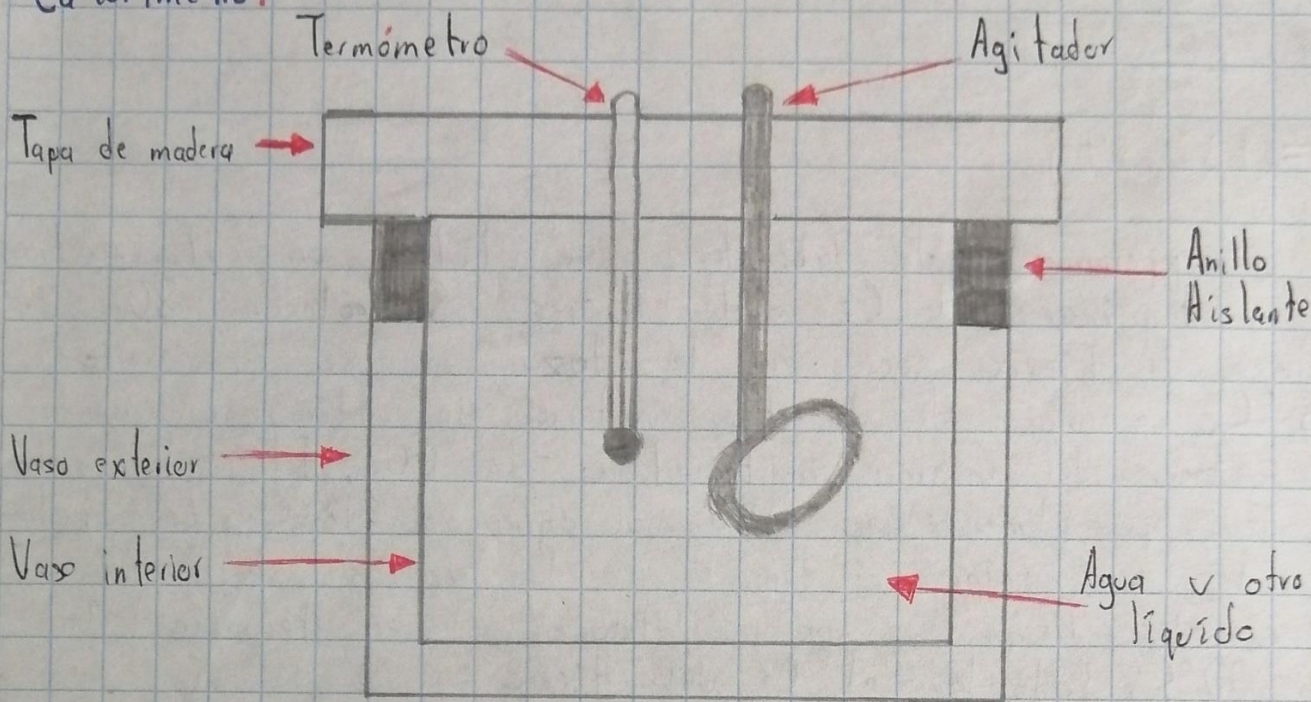 Termómetro
Agitador
Tapa de madera
Anillo
Aislante
Vaso exterior
Vaso interior
Agua u otro
líquido